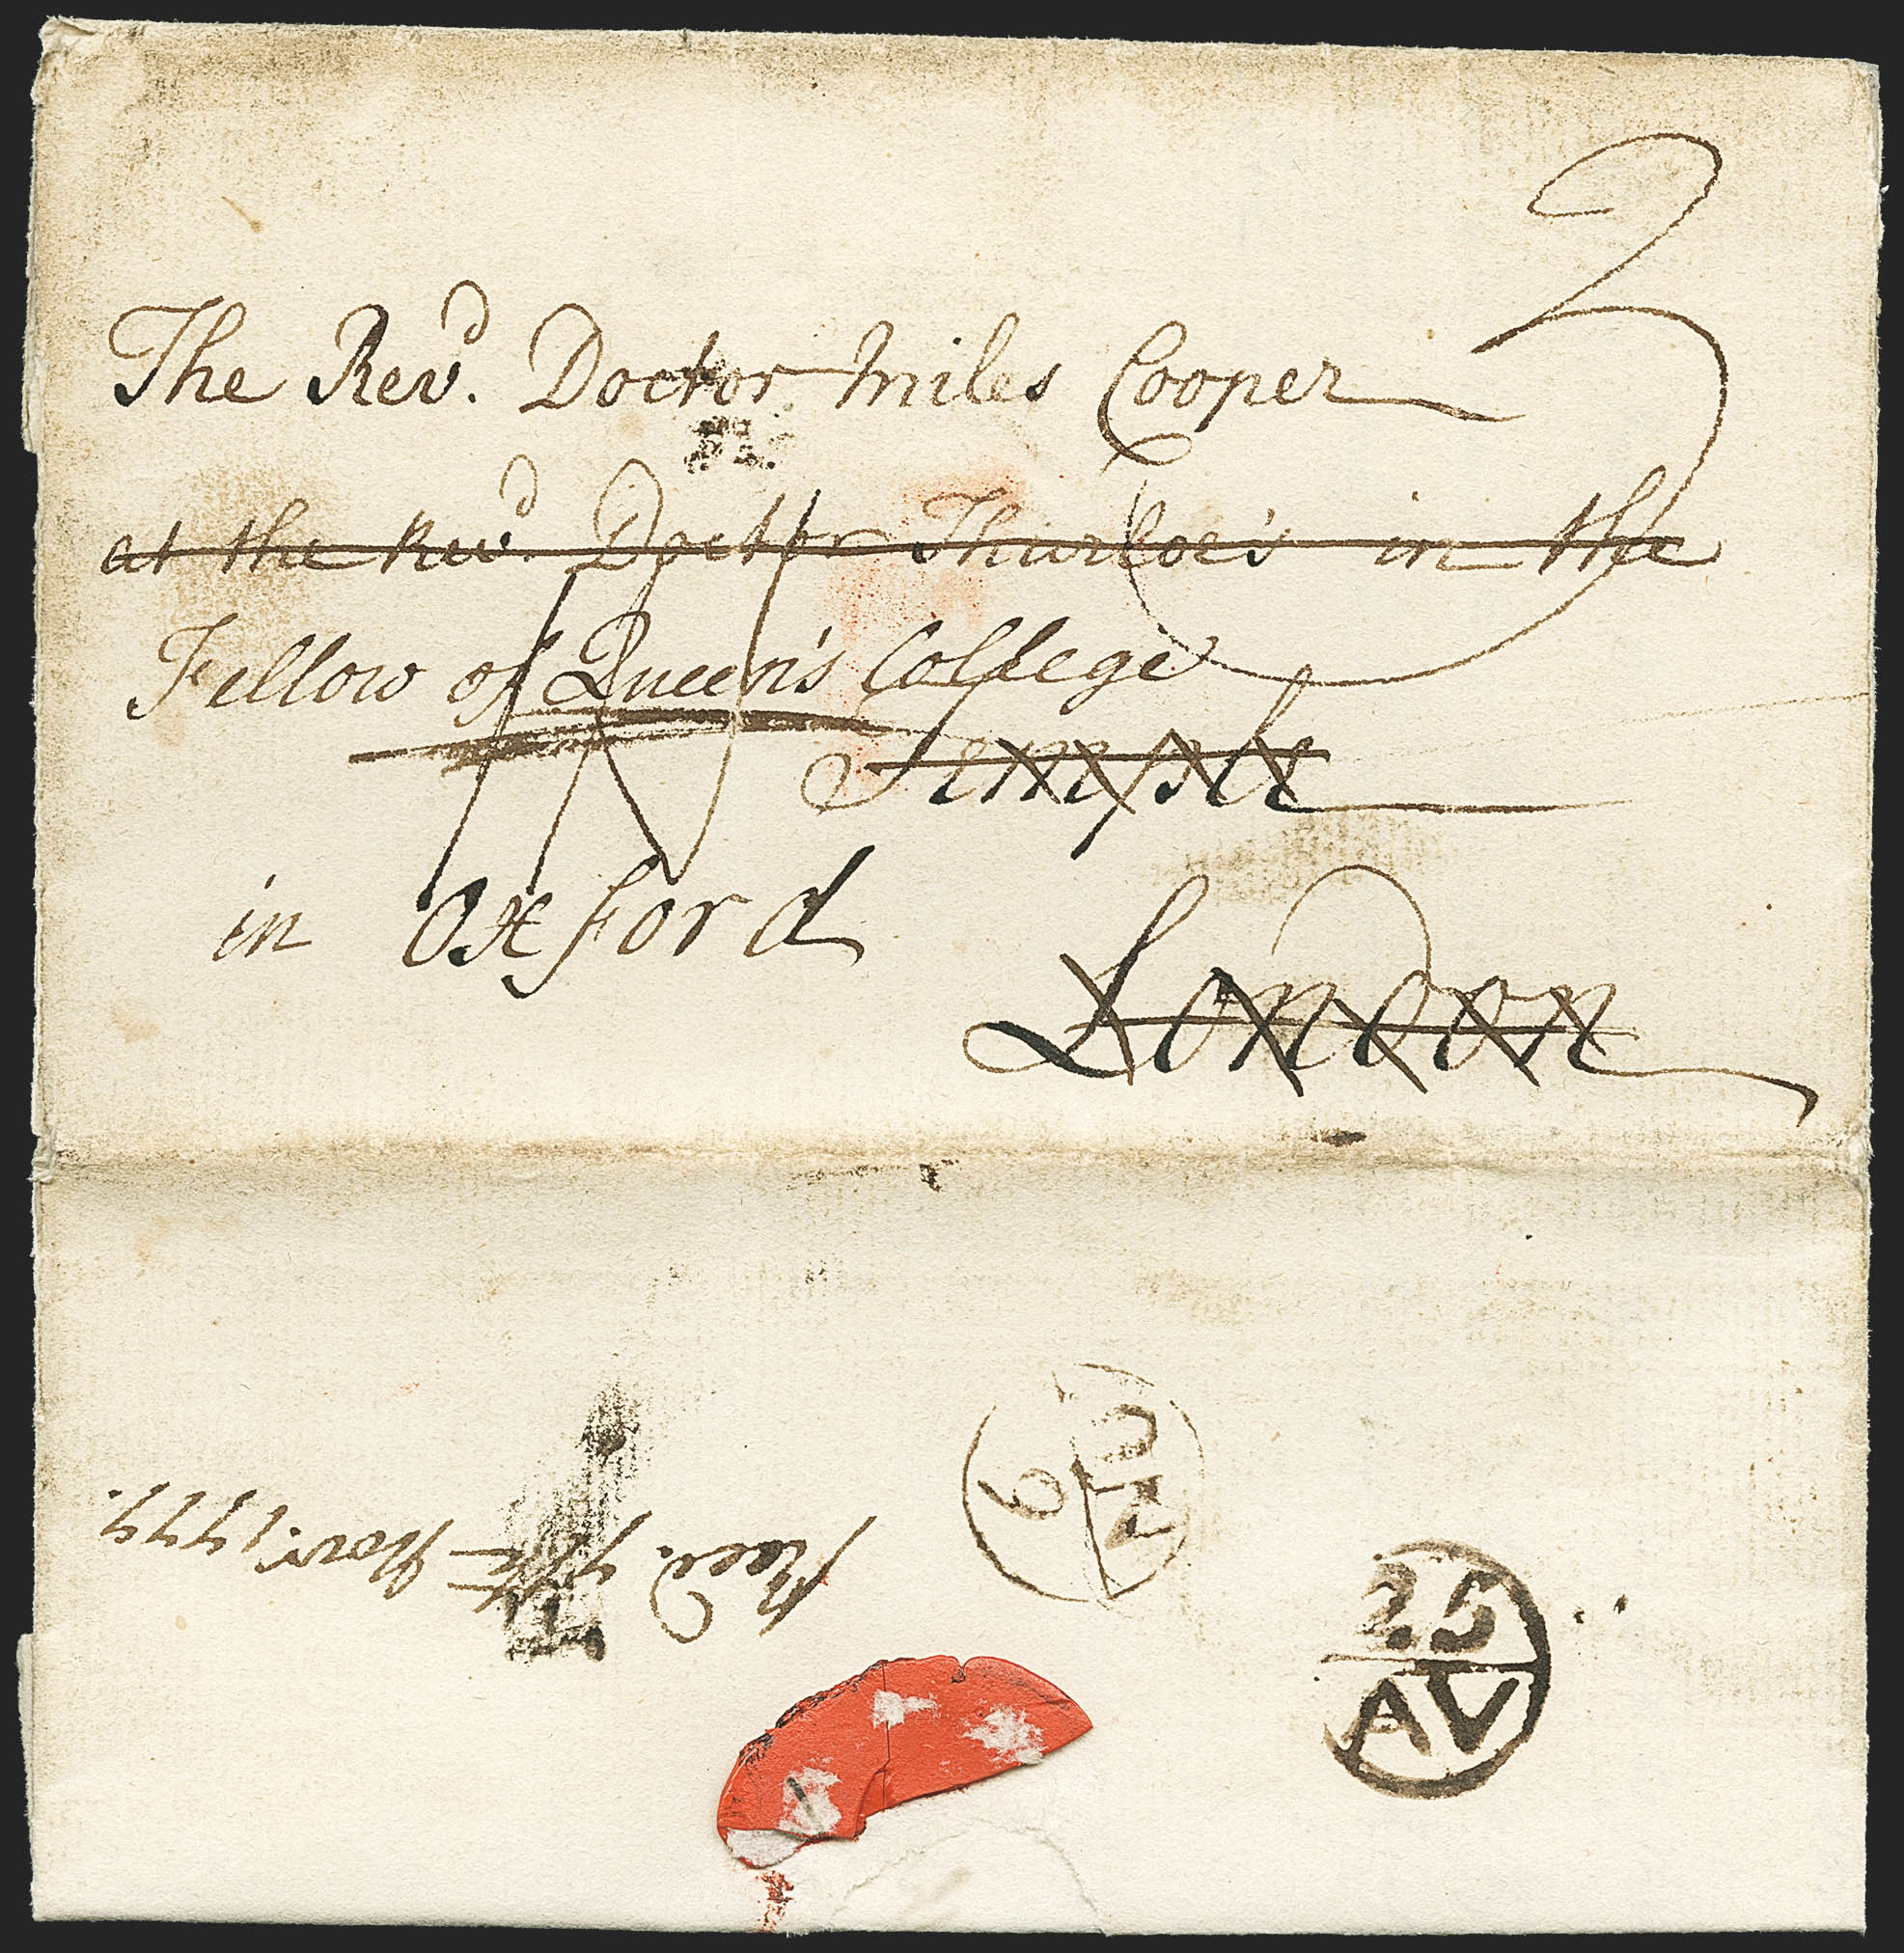 The Revd. Doctor Miles Cooper
at the Revd. Doctor Thurloe's in the
Fellow of Queen's College
Temple
in Oxford
London
9
NO
Recd. 7th Novr. 1777.
25
AV